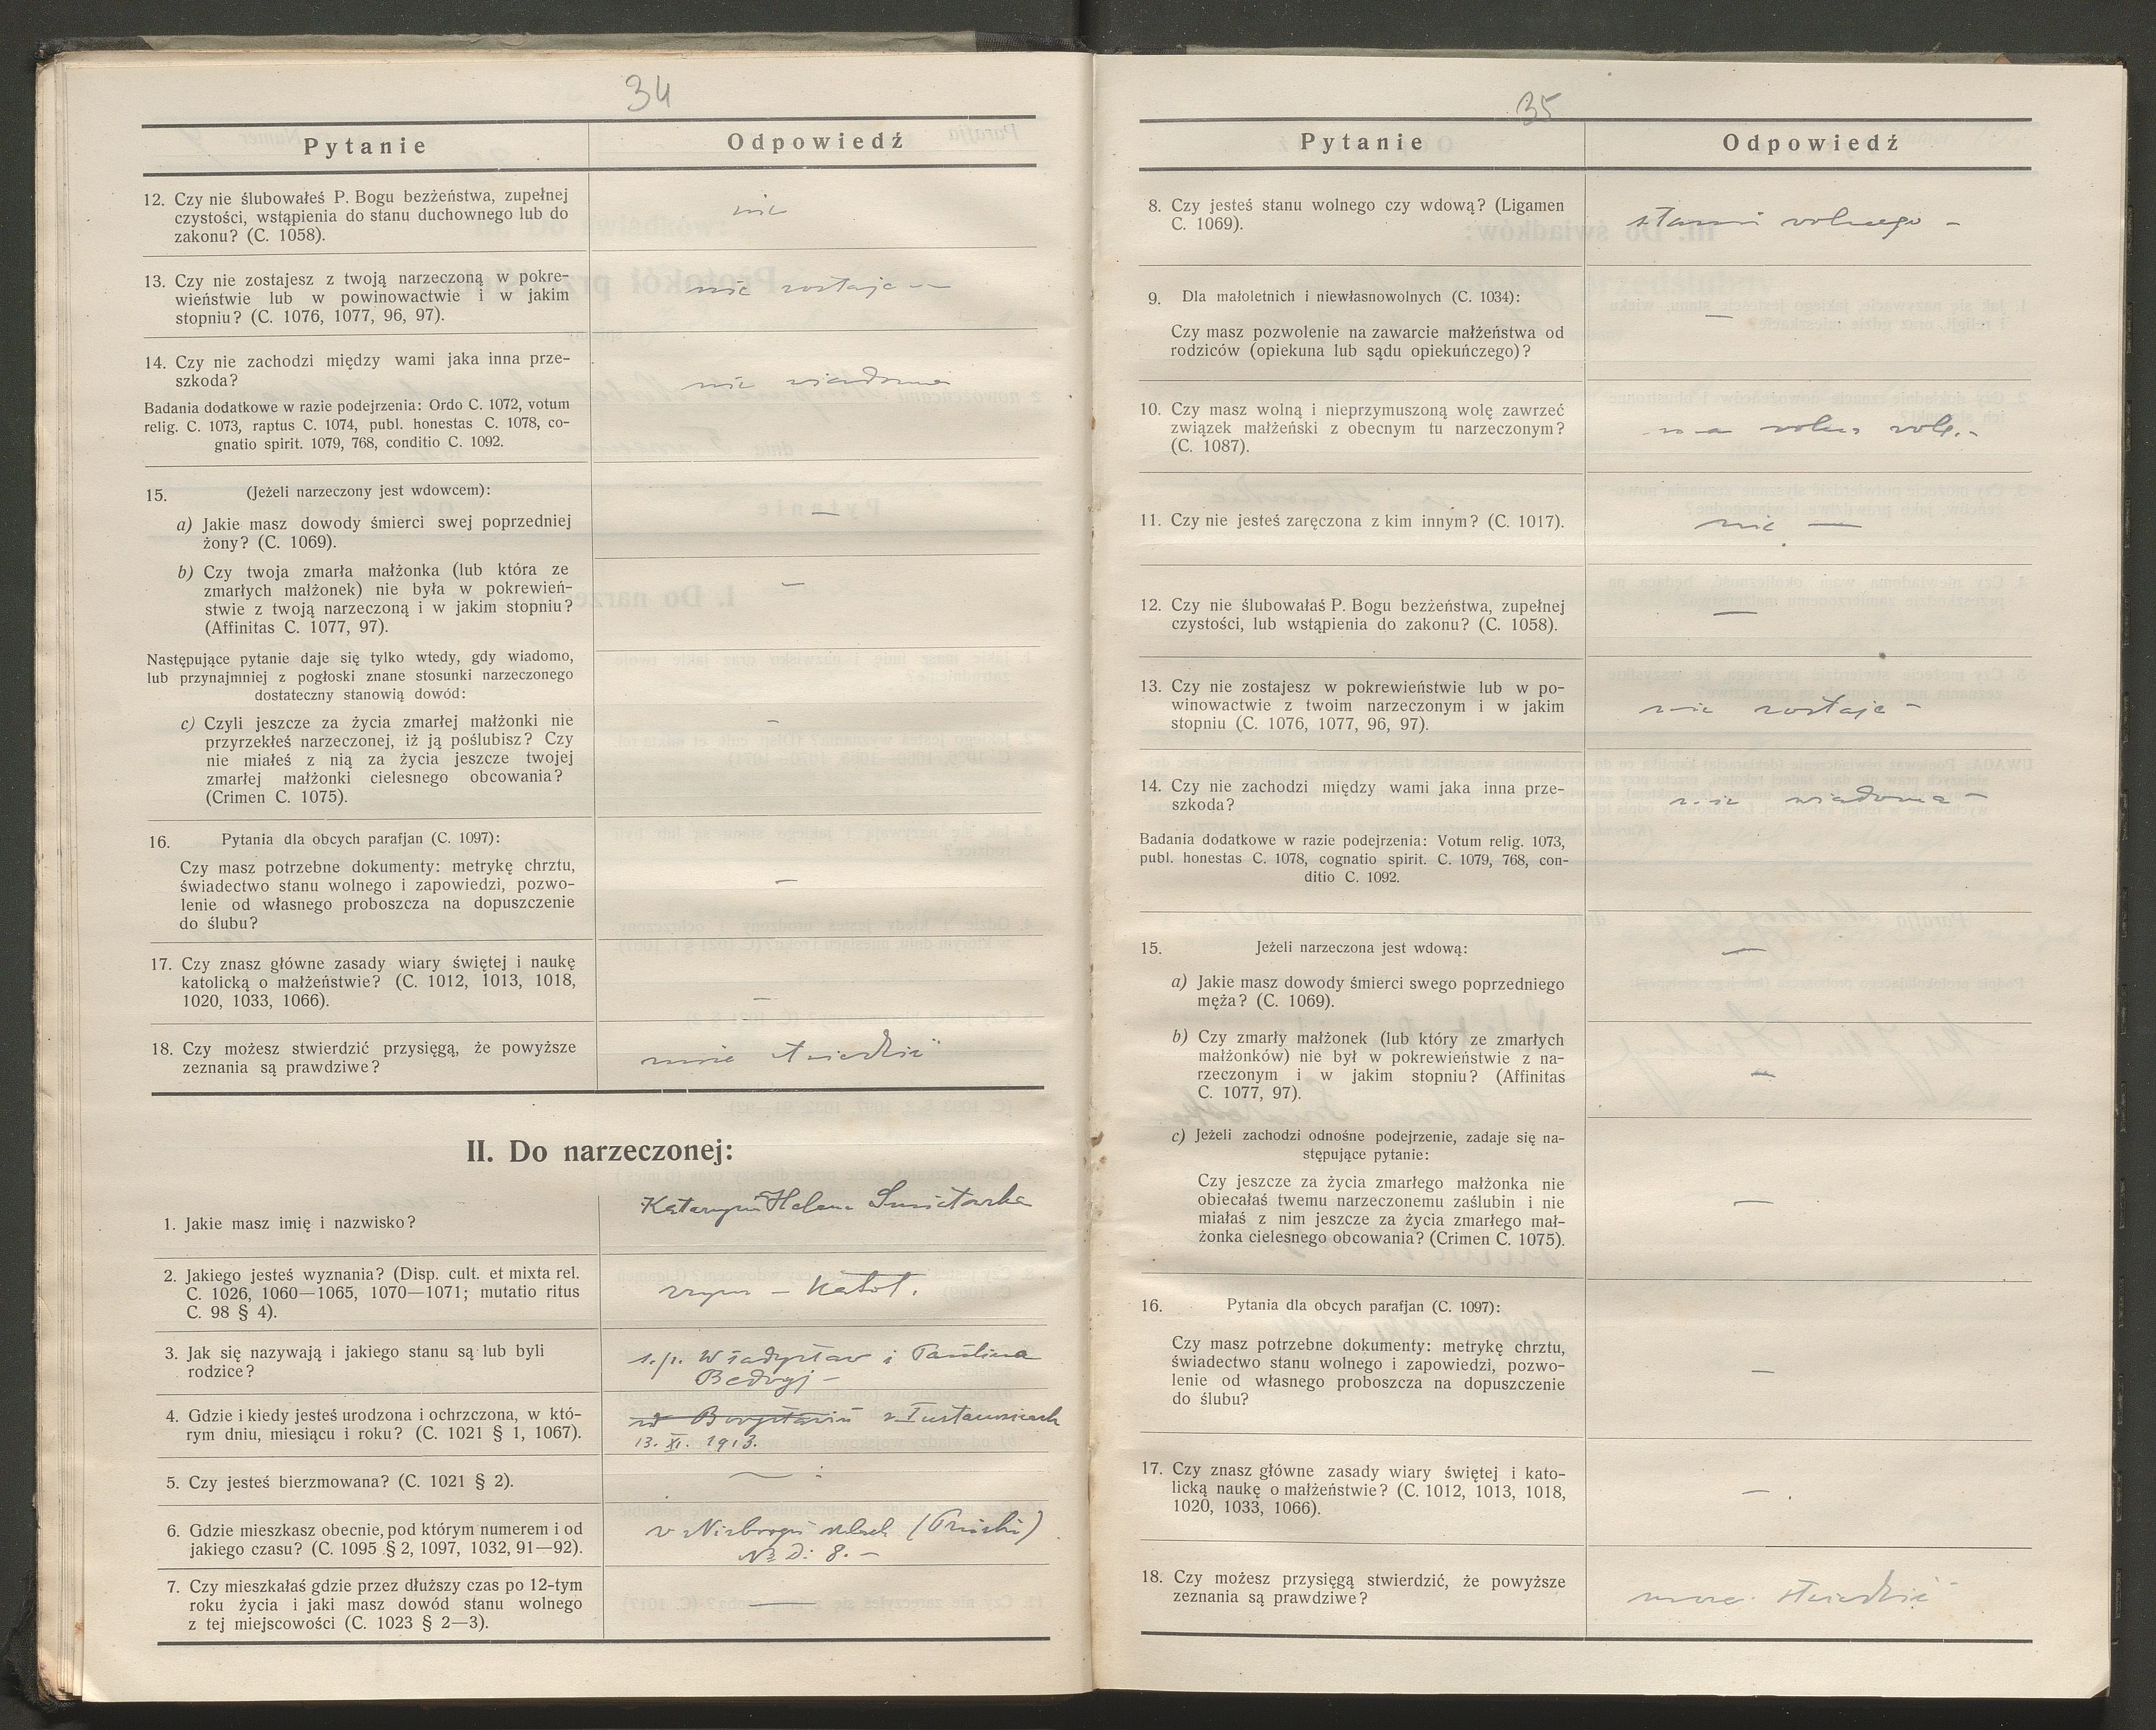 34
Pytanie
Odpowiedź
12. Czy nie ślubowałeś P. Bogu bezżeństwa, zupełnej
czystości, wstąpienia do stanu duchownego lub do
zakonu? (C. 1058).
nie
13. Czy nie zostajesz z twoją narzeczoną w pokre-
wieństwie lub w powinowactwie i w jakim
stopniu? (C. 1076, 1077, 96, 97).
nie zostaje —
14. Czy nie zachodzi między wami jaka inna prze-
szkoda?
nie wiadoma
Badania dodatkowe w razie podejrzenia: Ordo C. 1072, votum
relig. C. 1073, raptus C. 1074, publ. honestas C. 1078, co-
gnatio spirit. 1079, 768, conditio C. 1092.
15. (Jeżeli narzeczony jest wdowcem):
a) Jakie masz dowody śmierci swej poprzedniej
żony? (C. 1069).
—
b) Czy twoja zmarła małżonka (lub która ze
zmarłych małżonek) nie była w pokrewień-
stwie z twoją narzeczoną i w jakim stopniu?
(Affinitas C. 1077, 97).
—
Następujące pytanie daje się tylko wtedy, gdy wiadomo,
lub przynajmniej z pogłoski znane stosunki narzeczonego
dostateczny stanowią dowód:
c) Czyli jeszcze za życia zmarłej małżonki nie
przyrzekłeś narzeczonej, iż ją poślubisz? Czy
nie miałeś z nią za życia jeszcze twojej
zmarłej małżonki cielesnego obcowania?
(Crimen C. 1075).
—
16. Pytania dla obcych parafjan (C. 1097):
Czy masz potrzebne dokumenty: metrykę chrztu,
świadectwo stanu wolnego i zapowiedzi, pozwo-
lenie od własnego proboszcza na dopuszczenie
do ślubu?
—
17. Czy znasz główne zasady wiary świętej i naukę
katolicką o małżeństwie? (C. 1012, 1013, 1018,
1020, 1033, 1066).
—
18. Czy możesz stwierdzić przysięgą, że powyższe
zeznania są prawdziwe?
II. Do narzeczonej:
1. Jakie masz imię i nazwisko?
Katarzyna Helena
2. Jakiego jesteś wyznania? (Disp. cult. et mixta rel.
C. 1026, 1060—1065, 1070—1071; mutatio ritus
C. 98 § 4).
rzym – Katol.
3. Jak się nazywają i jakiego stanu są lub byli
rodzice?
ś.p. Władysław i Paulina
4. Gdzie i kiedy jesteś urodzona i ochrzczona, w któ-
rym dniu, miesiącu i roku? (C. 1021 § 1, 1067).
w Borysławiu w Tustanowicach
13. XI. 1913.
5. Czy jesteś bierzmowana? (C. 1021 § 2).
—
6. Gdzie mieszkasz obecnie, pod którym numerem i od
jakiego czasu? (C. 1095 § 2, 1097, 1032, 91—92).
w
№ D: 8. –
7. Czy mieszkałaś gdzie przez dłuższy czas po 12-tym
roku życia i jaki masz dowód stanu wolnego
z tej miejscowości (C. 1023 § 2—3).
—
35
Pytanie
Odpowiedź
8. Czy jesteś stanu wolnego czy wdową? (Ligamen
C. 1069).
stanu wolnego –
9. Dla małoletnich i niewłasnowolnych (C. 1034):
Czy masz pozwolenie na zawarcie małżeństwa od
rodziców (opiekuna lub sądu opiekuńczego)?
—
10. Czy masz wolną i nieprzymuszoną wolę zawrzeć
związek małżeński z obecnym tu narzeczonym?
(C. 1087).
ma wolną wolę. –
11. Czy nie jesteś zaręczona z kim innym? (C. 1017).
nie —
12. Czy nie ślubowałaś P. Bogu bezżeństwa, zupełnej
czystości, lub wstąpienia do zakonu? (C. 1058).
—
13. Czy nie zostajesz w pokrewieństwie lub w po-
winowactwie z twoim narzeczonym i w jakim
stopniu (C. 1076, 1077, 96, 97).
nie zostaje –
14. Czy nie zachodzi między wami jaka inna prze-
szkoda?
nie wiadoma –
Badania dodatkowe w razie podejrzenia: Votum relig. 1073,
publ. honestas C. 1078, cognatio spirit. C. 1079, 768, con-
ditio C. 1092.
15. Jeżeli narzeczona jest wdową:
—
a) Jakie masz dowody śmierci swego poprzedniego
męża? (C. 1069).
b) Czy zmarły małżonek (lub który ze zmarłych
małżonków) nie był w pokrewieństwie z na-
rzeczonym i w jakim stopniu? (Affinitas
C. 1077, 97).
—
c) Jeżeli zachodzi odnośne podejrzenie, zadaje się na-
stępujące pytanie:
Czy jeszcze za życia zmarłego małżonka nie
obiecałaś twemu narzeczonemu zaślubin i nie
miałaś z nim jeszcze za życia zmarłego mał-
żonka cielesnego obcowania? (Crimen C. 1075).
—
16. Pytania dla obcych parafjan (C. 1097):
Czy masz potrzebne dokumenty: metrykę chrztu,
świadectwo stanu wolnego i zapowiedzi, pozwo-
lenie od własnego proboszcza na dopuszczenie
do ślubu?
—
17. Czy znasz główne zasady wiary świętej i kato-
licką naukę o małżeństwie? (C. 1012, 1013, 1018,
1020, 1033, 1066).
— .
18. Czy możesz przysięgą stwierdzić, że powyższe
zeznania są prawdziwe?